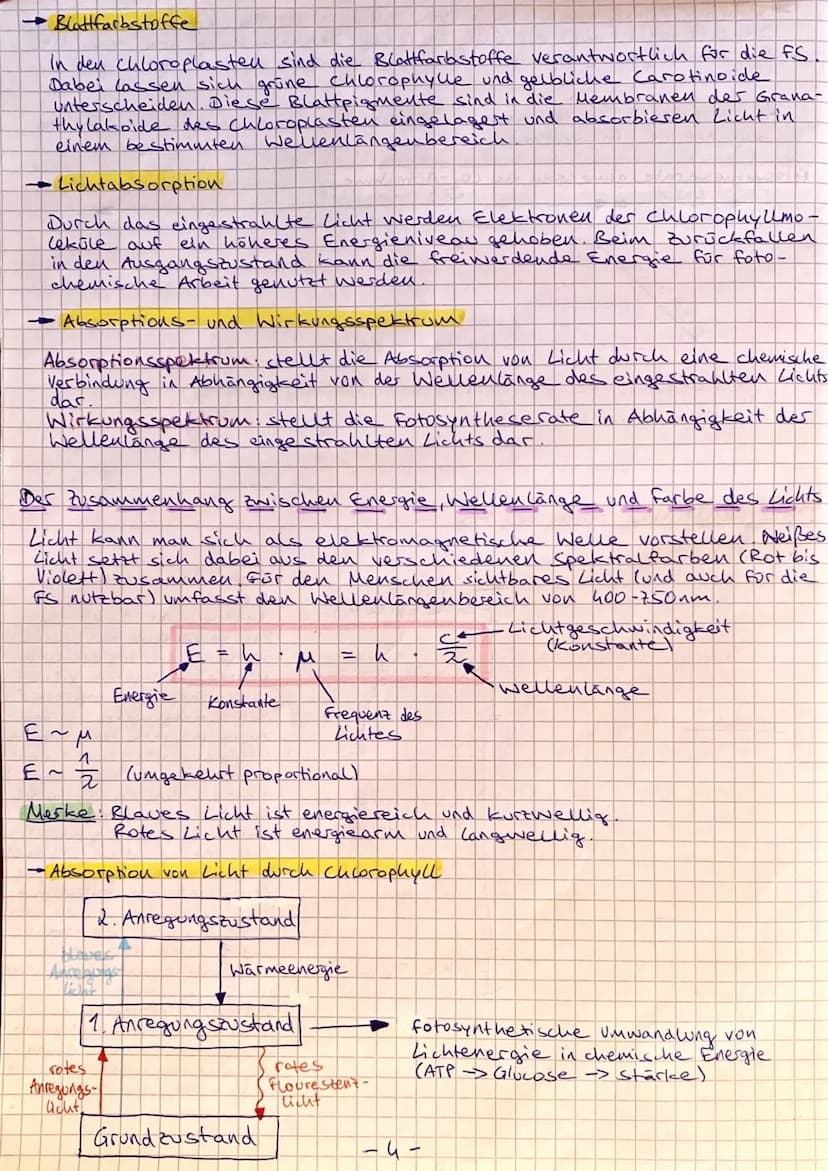 → Blattfarbstoffe
In den Chloroplasten sind die Blattfarbstoffe verantwortlich für die FS.
Dabei lassen sich grüne Chlorophylle und gelbliche Carotinoide
unterscheiden. Diese Blattpigmente sind in die Membranen der Grana-
thylakoide des Chloroplasten eingelagert und absorbieren Licht in
einem bestimmten Wellenlängenbereich.
→ Lichtabsorption
Durch das eingestrahlte Licht werden Elektronen der Chlorophyllmo-
leküle auf ein höheres Energieniveau gehoben. Beim Zurückfallen
in den Ausgangszustand kann die freiwerdende Energie für foto-
chemische Arbeit genutzt werden.
→ Absorptions- und Wirkungsspektrum
Absorptionsspektrum: stellt die Absorption von Licht durch eine chemische
Verbindung in Abhängigkeit von der Wellenlänge des eingestrahlten Lichts
dar.
Wirkungsspektrum: stellt die Fotosyntheserate in Abhängigkeit der
Wellenlänge des eingestrahlten Lichts dar.
Der Zusammenhang zwischen Energie, Wellenlänge und Farbe des Lichts
Licht kann man sich als elektromagnetische Welle vorstellen. Weißes
Licht setzt sich dabei aus den verschiedenen Spektralfarben (Rot bis
Violett) zusammen. Für den Menschen sichtbares Licht (und auch für die
FS nutzbar) umfasst den Wellenlängenbereich von 400-750nm.
E = h · μ = h · c/λ
Lichtgeschwindigkeit
(Konstante)
Wellenlänge
Energie
Konstante
Frequenz des
Lichtes
E ~ μ
E ~ 1/λ (umgekehrt proportional)
Merke: Blaues Licht ist energiereich und kurzwellig.
Rotes Licht ist energiearm und langwellig.
→ Absorption von Licht durch Chlorophyll
2. Anregungszustand
blaues
Anregungs-
licht
Wärmeenergie
1. Anregungszustand
fotosynthetische Umwandlung von
Lichtenergie in chemische Energie
(ATP → Glucose → Stärke)
rotes
Anregungs-
licht
rotes
Flourestenz-
licht
Grundzustand
- 4 -